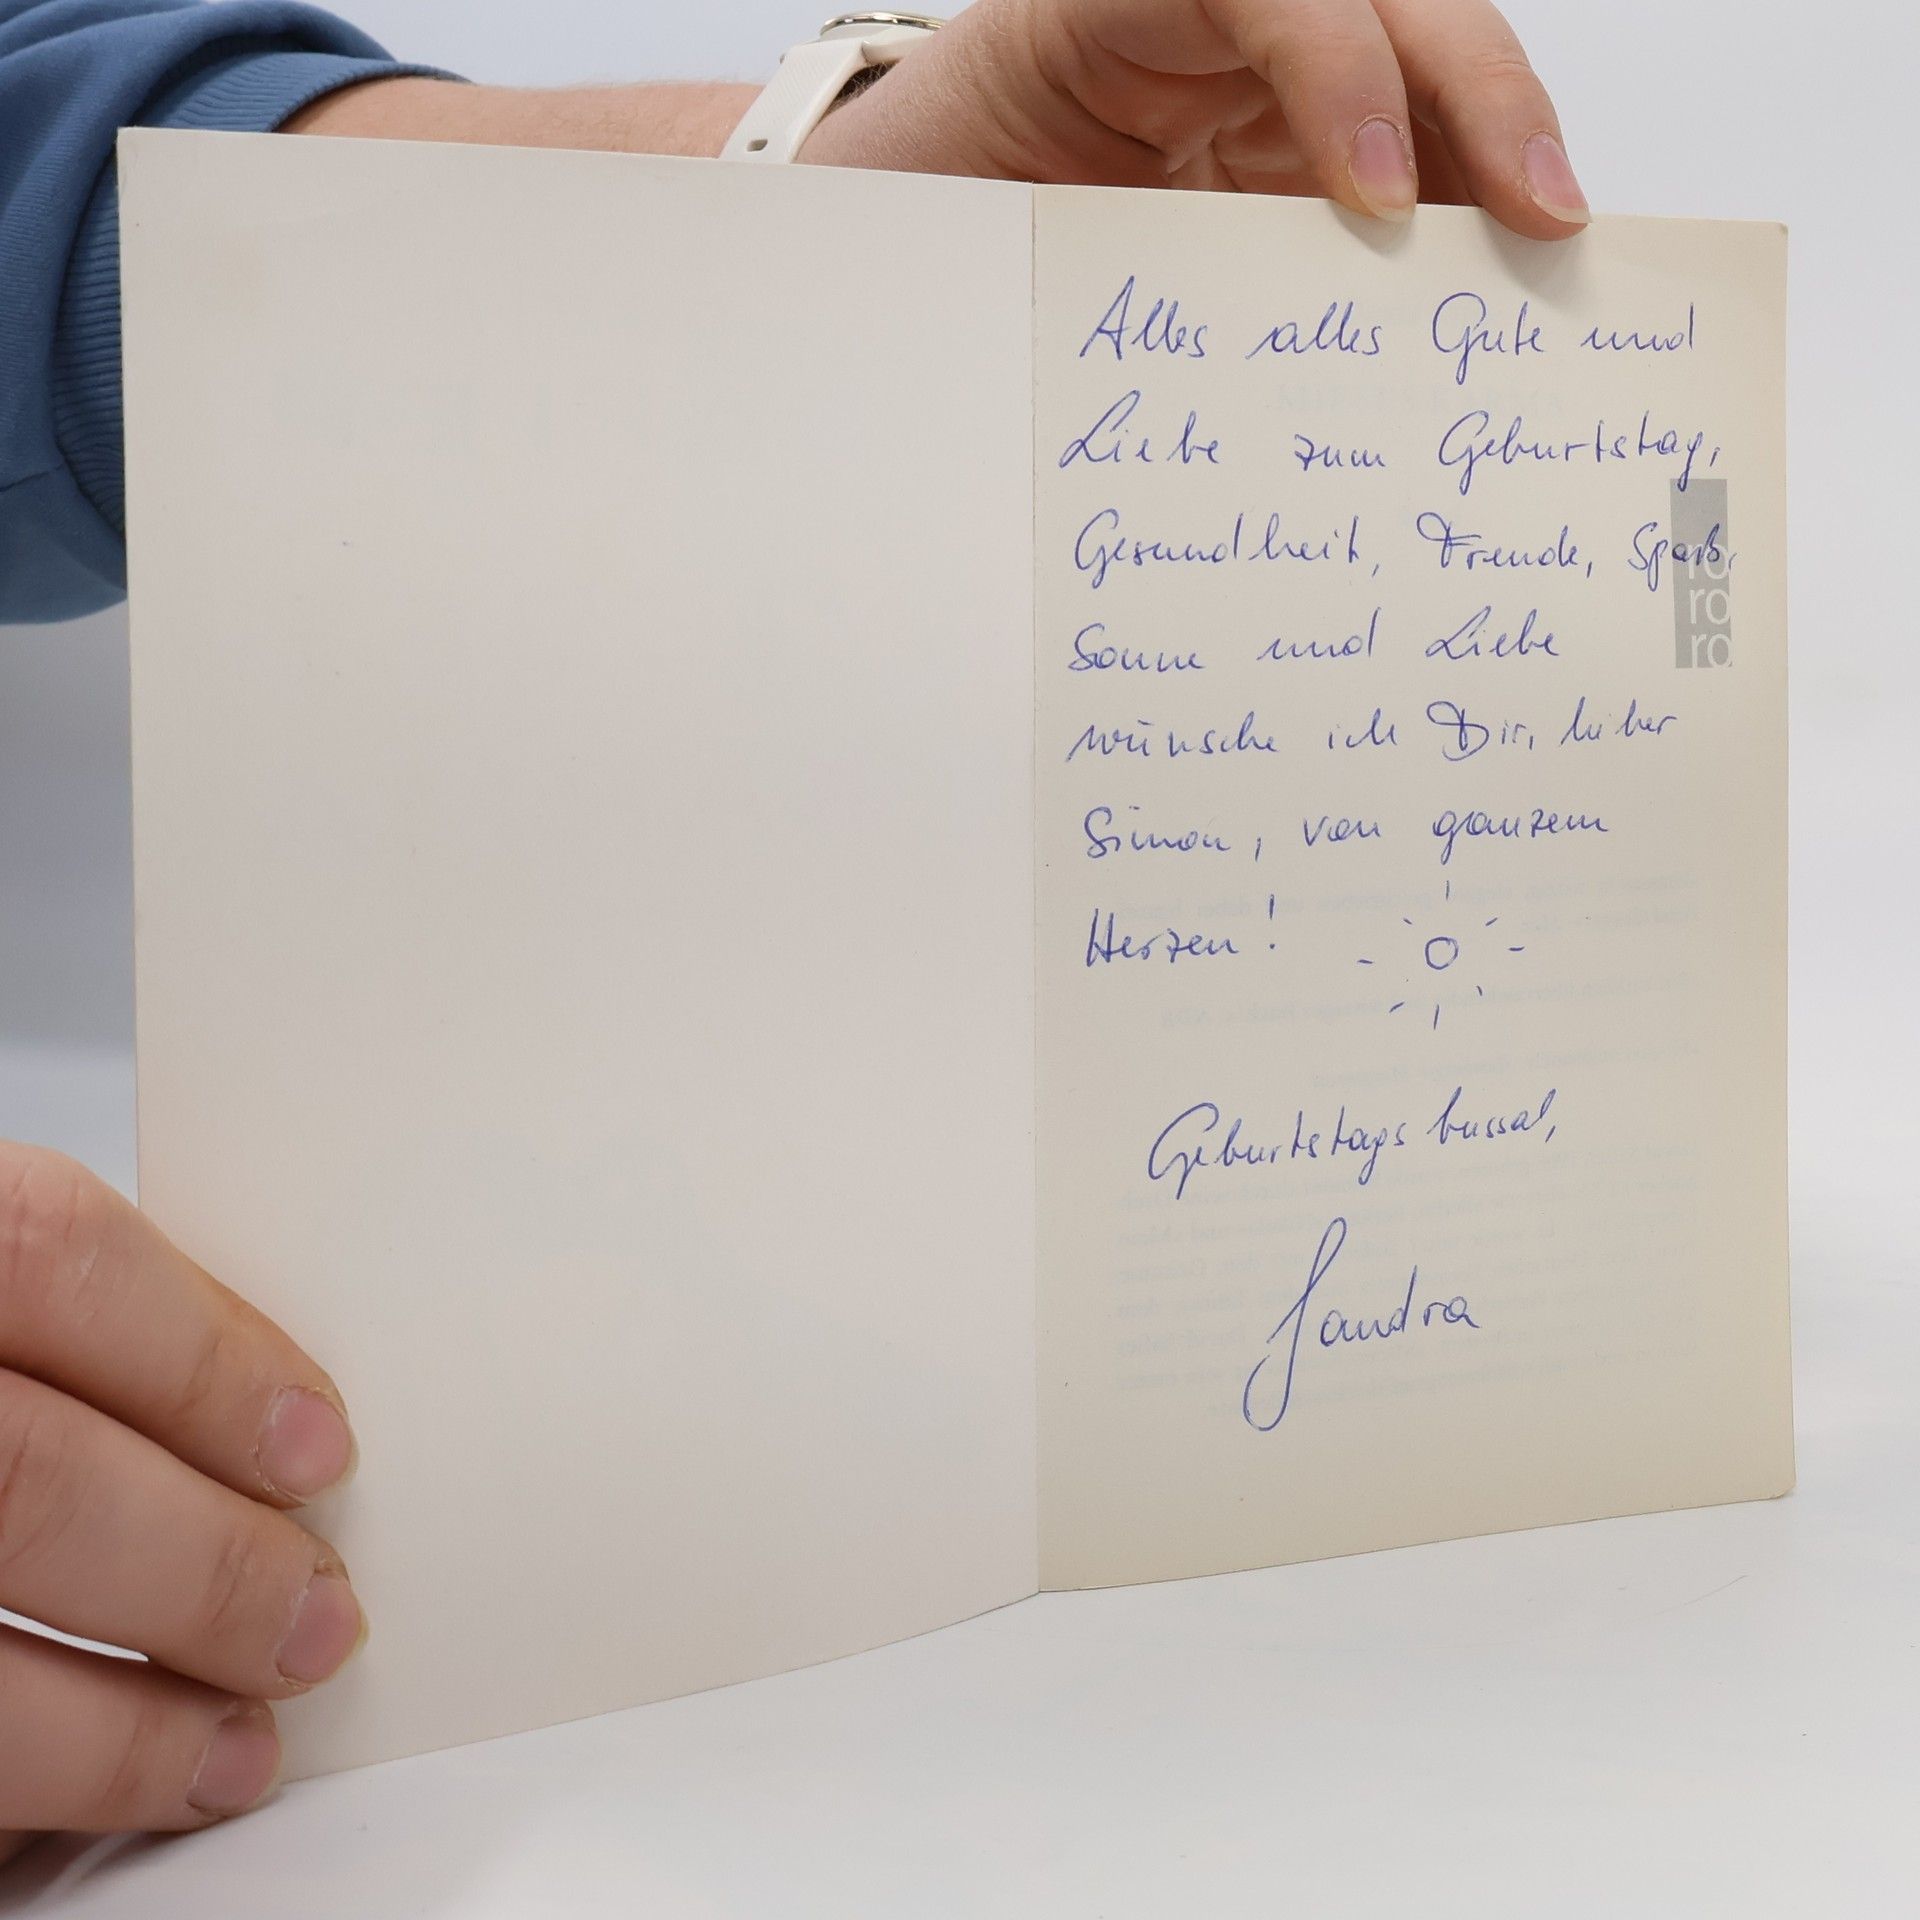 Alles alles Gute und
Liebe zum Geburtstag,
Gesundheit, Freude, Spaß,
Sonne und Liebe
wünsche ich Dir, lieber
Simon, von ganzem
Herzen!
Geburtstagsbussal,
Sandra
ro
ro
ro